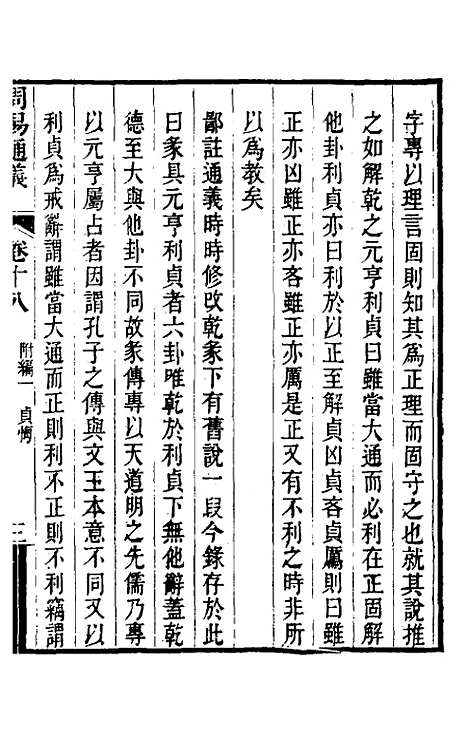 字專以理言固則知其爲正理而固守之也就其說推
之如解乾之元亨利貞曰雖當大通而必利在正固解
他卦利貞亦曰利於以正至解貞凶貞吝貞厲則曰雖
正亦凶雖正亦吝雖正亦厲是正又有不利之時非所
以爲教矣
鄙註通義時時修改乾彖下有舊說一段今錄存於此
曰彖具元亨利貞者六卦唯乾於利貞下無他辭蓋乾
德至大與他卦不同故彖傳專以天道明之先儒乃專
以元亨屬占者因謂孔子之傳與文王本意不同又以
利貞爲戒辭謂雖當大通而正則利不正則不利竊謂
周易通義
卷十八
附編一
貞悔
三